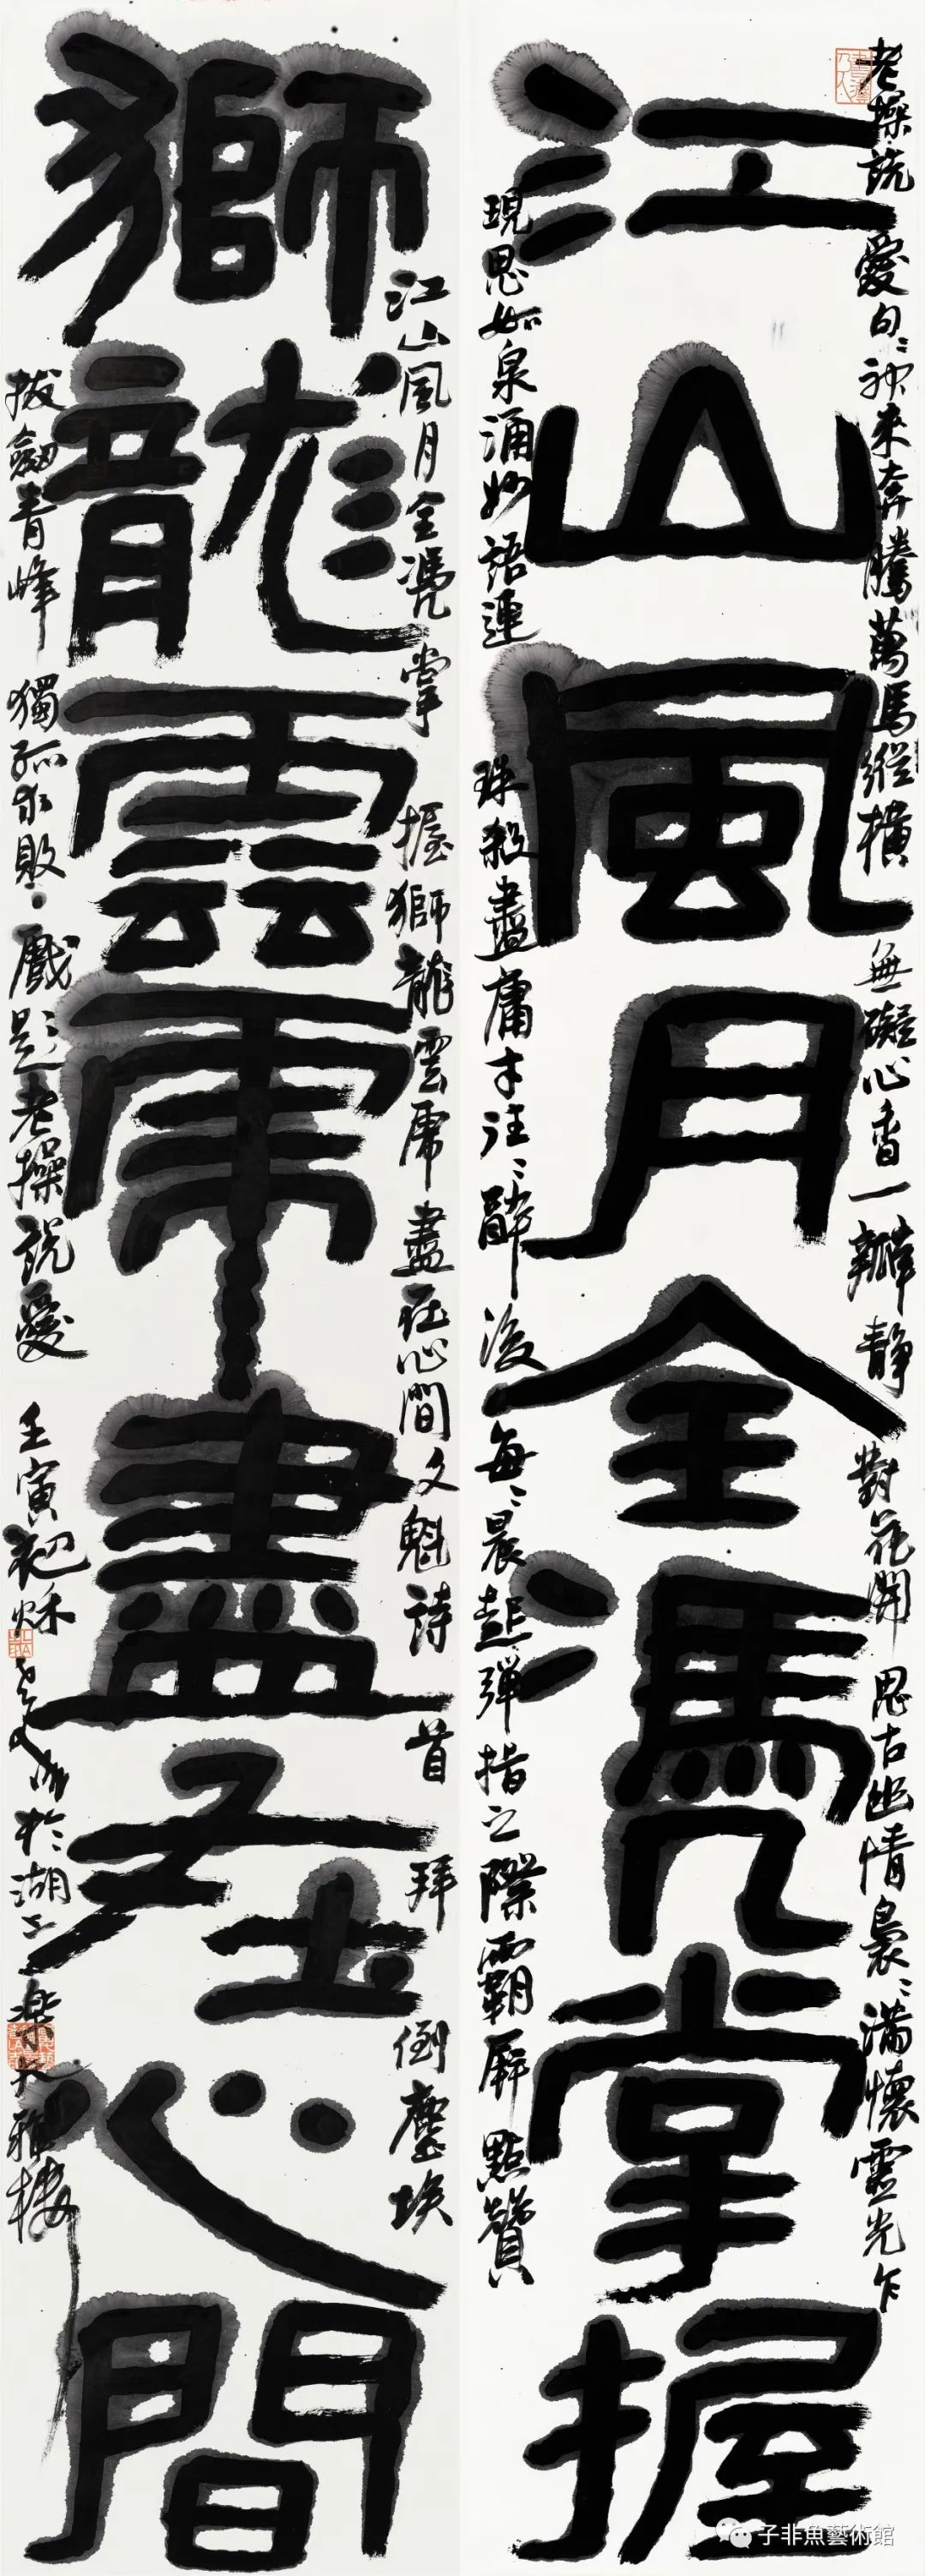 江山風月全馮几掌握
獅龍雲虎盡在心間
老操說愛句〻神來奔騰萬馬縱橫無礙心香一瓣靜對花開思古幽情裊〻滿懷靈光乍
現思如泉涌妙語連珠殺盡庸才注〻醉後每〻晨起彈指之際霸屏點贊
江山風月全憑掌握獅龍雲虎盡在心間文魁詩首拜倒塵埃
拔劍青峰獨孤求敗戲題老操說愛壬寅初秋
於湖上樂大雅樓
子非魚藝術館